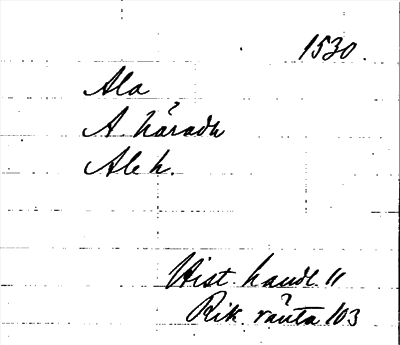 1530.
Ala
A. häradh
Ale h.
Hist. handl. 11
Rik. ränta 103